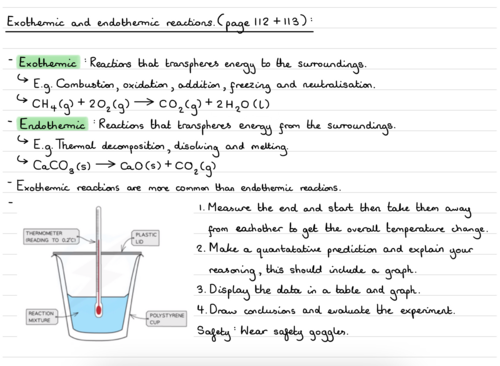 Exothermic and endothermic reactions. (page 112 + 113):
- Exothermic : Reactions that transpheres energy to the surroundings.
↳ E.g. Combustion, oxidation, addition, freezing and neutralisation.
↳ CH₄(g) + 2O₂(g) → CO₂(g) + 2H₂O(l)
- Endothermic : Reactions that transpheres energy from the surroundings.
↳ E.g. Thermal decomposition, disolving and melting.
↳ CaCO₃(s) → CaO(s) + CO₂(g)
- Exothermic reactions are more common than endothermic reactions.
-
THERMOMETER
(READING TO 0.2°C)
PLASTIC
LID
REACTION
MIXTURE
POLYSTYRENE
CUP
1. Measure the end and start then take them away
from eachother to get the overall temperature change.
2. Make a quantatative prediction and explain your
reasoning, this should include a graph.
3. Display the data in a table and graph.
4. Draw conclusions and evaluate the experiment.
Safety : Wear safety goggles.